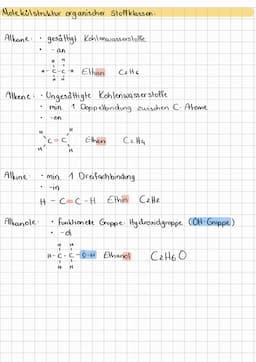 Molekülstruktur organischer Stoffklassen:
Alkane: • gesättigt Kohlenwasserstoffe
• -an
H H
H - C - C - H Ethan C2H6
H H
Alkene: • Ungesättigte Kohlenwasserstoffe
• min. 1 Doppelbindung zwischen C-Atome
• -en
H H
C = C Ethen C2H4
H H
Alkine: • min. 1 Dreifachbindung
• -in
H - C ≡ C - H Ethin C2H2
Alkanole: • Funktionelle Gruppe: Hydroxidgruppe (OH-Gruppe)
• -ol
H H
H - C - C - O-H Ethanol C2H6O
H H